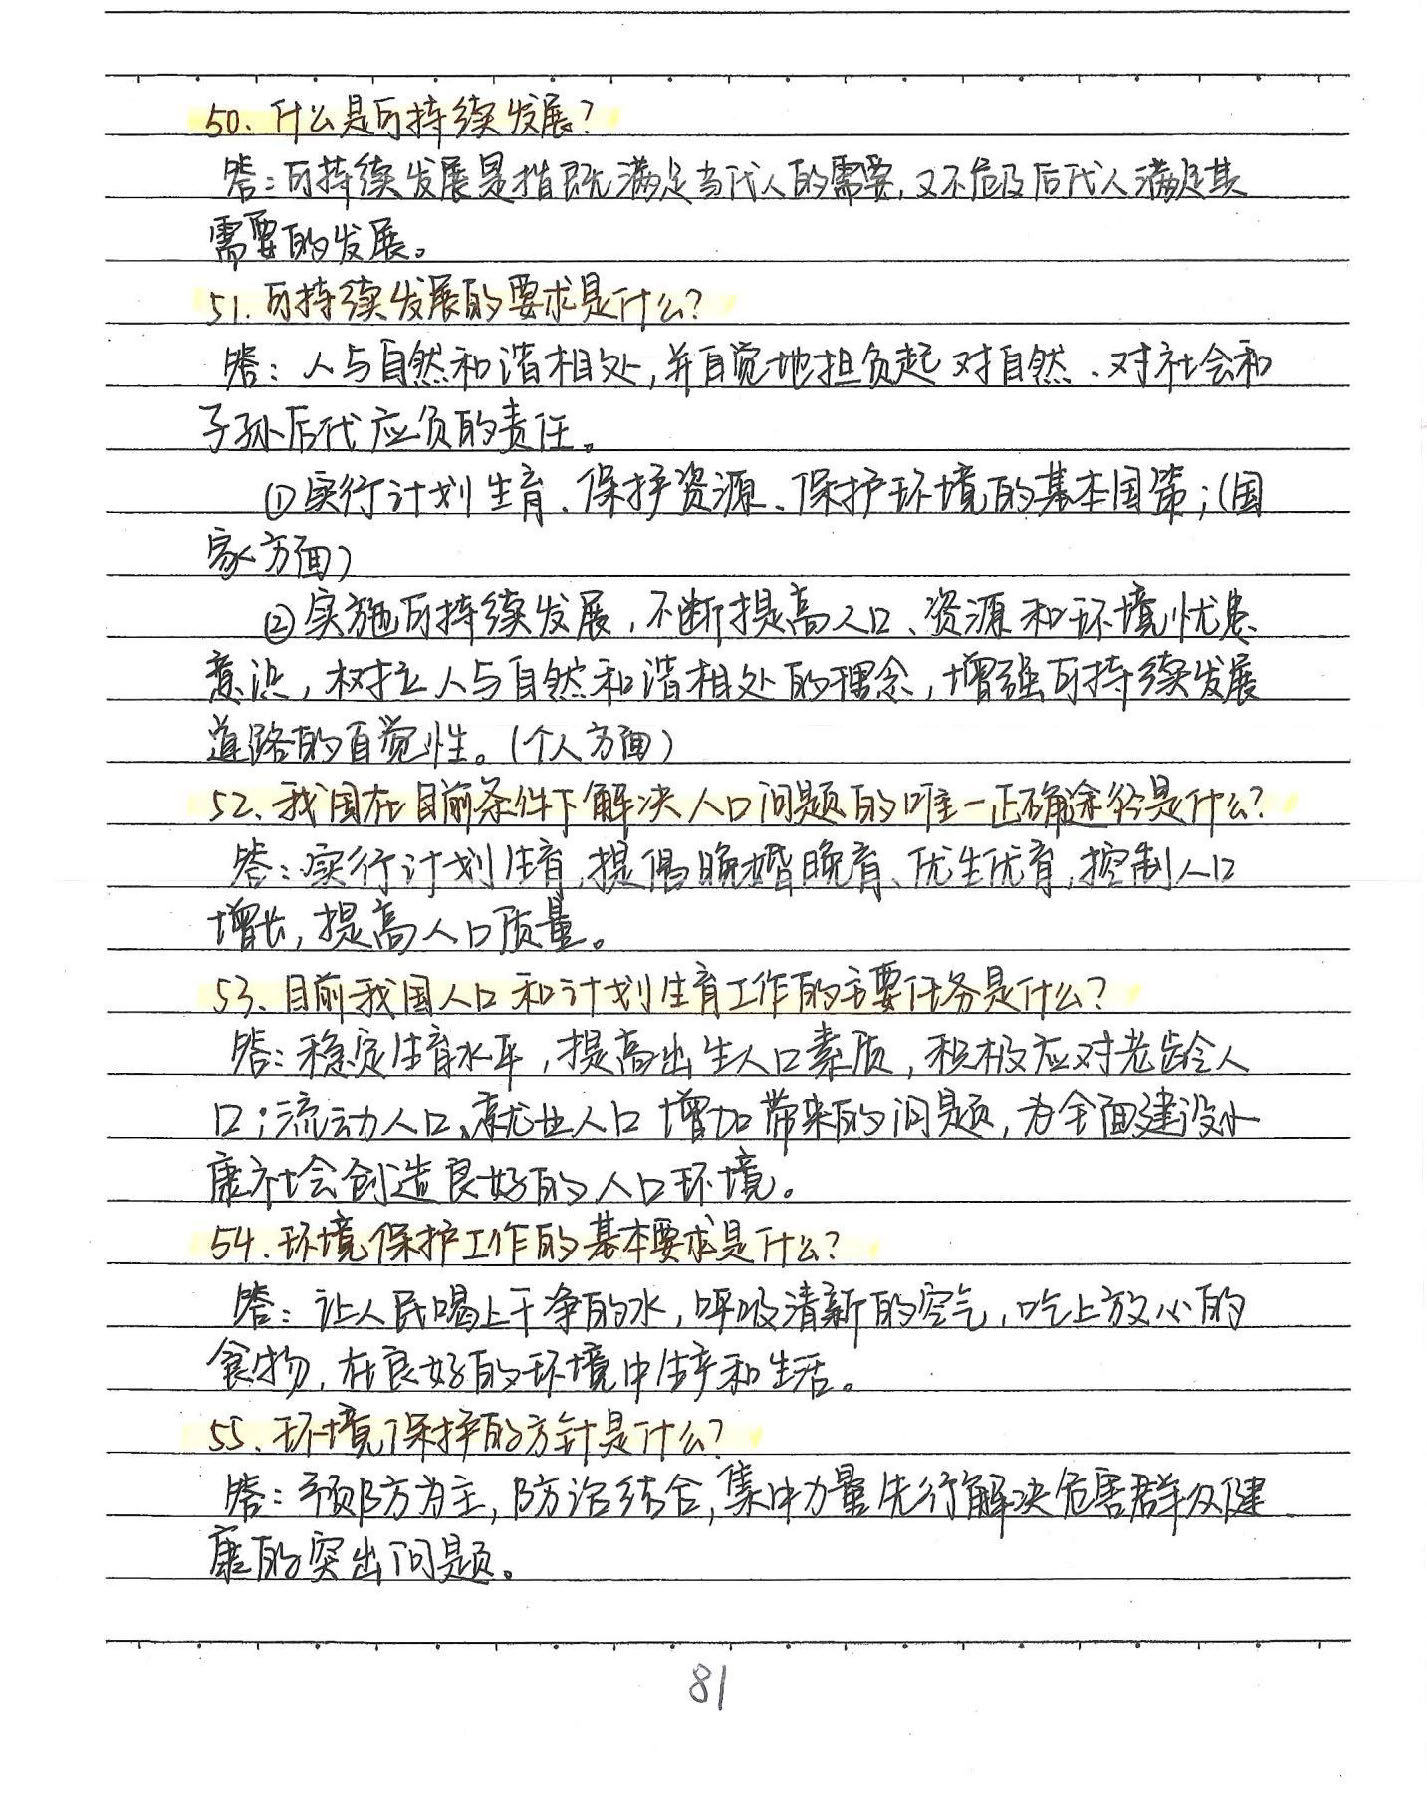 50、什么是可持续发展?
答:可持续发展是指既满足当代人的需要,又不危及后代人满足其
需要的发展。
51.可持续发展的要求是什么?
答:人与自然和谐相处,并自觉地担负起对自然、对社会和
子孙后代应负的责任。
①实行计划生育、保护资源、保护环境的基本国策;(国
家方面)
②实施可持续发展,不断提高人口、资源和环境忧患
意识,树立人与自然和谐相处的理念,增强可持续发展
道路的自觉性。(个人方面)
52、我国在目前条件下解决人口问题的唯一正确途径是什么?
答:实行计划生育,提倡晚婚晚育、优生优育,控制人口
增长,提高人口质量。
53、目前我国人口和计划生育工作的主要任务是什么?
答:稳定生育水平,提高出生人口素质,积极应对老龄人
口;流动人口、就业人口增加带来的问题,为全面建设小
康社会创造良好的人口环境。
54.环境保护工作的基本要求是什么?
答:让人民喝上干净的水,呼吸清新的空气,吃上放心的
食物,在良好的环境中生产和生活。
55、环境保护的方针是什么?
答:预防为主,防治结合,集中力量先行解决危害群众健
康的突出问题。
81